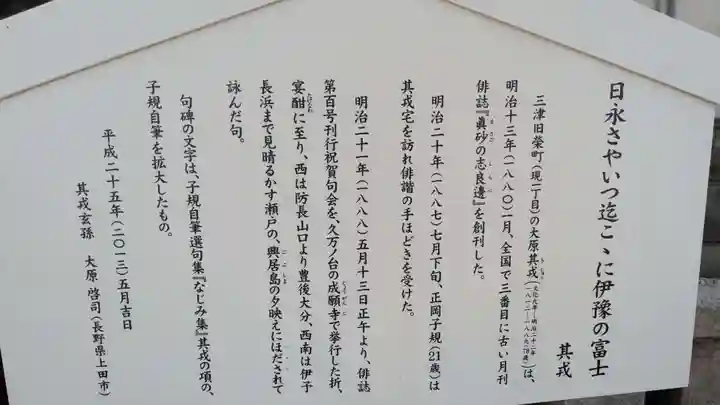 日永さやいつ迄こゝに伊豫の富士
其戎
三津旧榮町(現二丁目)の大原其戎(文化九年―明治二十二年 一八一二―一八八九・78歳)は、
明治十三年(一八八〇)一月、全国で三番目に古い月刊
俳誌『眞砂の志良邊』を創刊した。
明治二十年(一八八七)七月下旬、正岡子規(21歳)は
其戎宅を訪れ俳諧の手ほどきを受けた。
明治二十一年(一八八八)五月十三日正午より、俳誌
第百号刊行祝賀句会を、久万ノ台の成願寺で挙行した折、
宴酣に至り、西は防長山口より豊後大分、西南は伊予
長浜まで見晴るかす瀬戸の、興居島の夕映えにほだされて
詠んだ句。
句碑の文字は、子規自筆選句集『なじみ集』其戎の項の、
子規自筆を拡大したもの。
平成二十五年(二〇一三)五月吉日
其戎玄孫 大原啓司(長野県上田市)